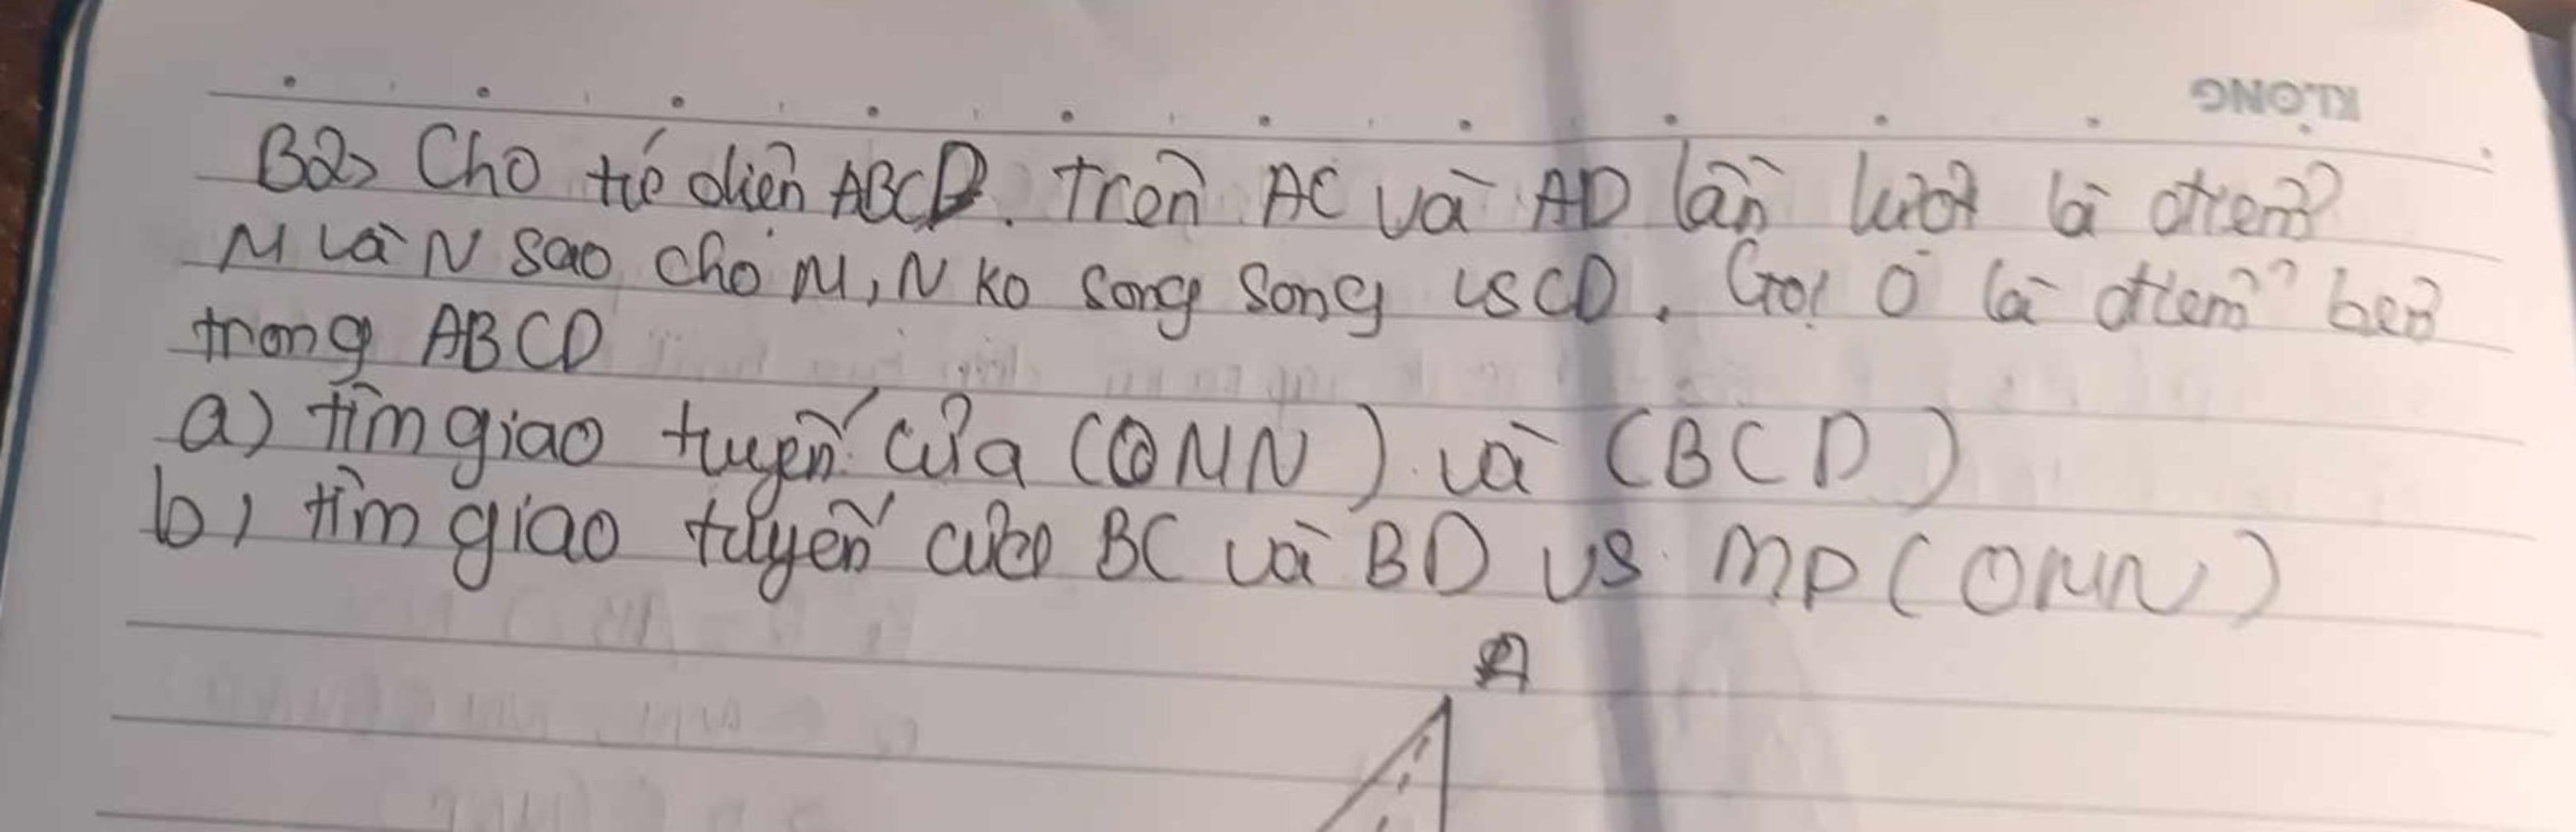 KLONG
B2> Cho tứ diện ABCD. Trên AC và AD lần lượt là điểm
M và N sao cho M, N ko song song vs CD. Gọi O là điểm bên
trong ABCD
a) tìm giao tuyến của (OMN) và (BCD)
b) tìm giao tuyến của BC và BD vs mp (OMN)
A